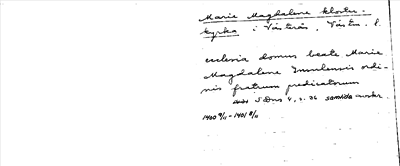 Marie Magdalene kloster-
kyrka i Västerås, Västm. l.
ecclesia domus beate Marie
Magdalene Insulensis ordi-
nis fratrum predicatorum
SDns 4, s. 26 samtida avskr.
1400 9/11 - 1401 8/11